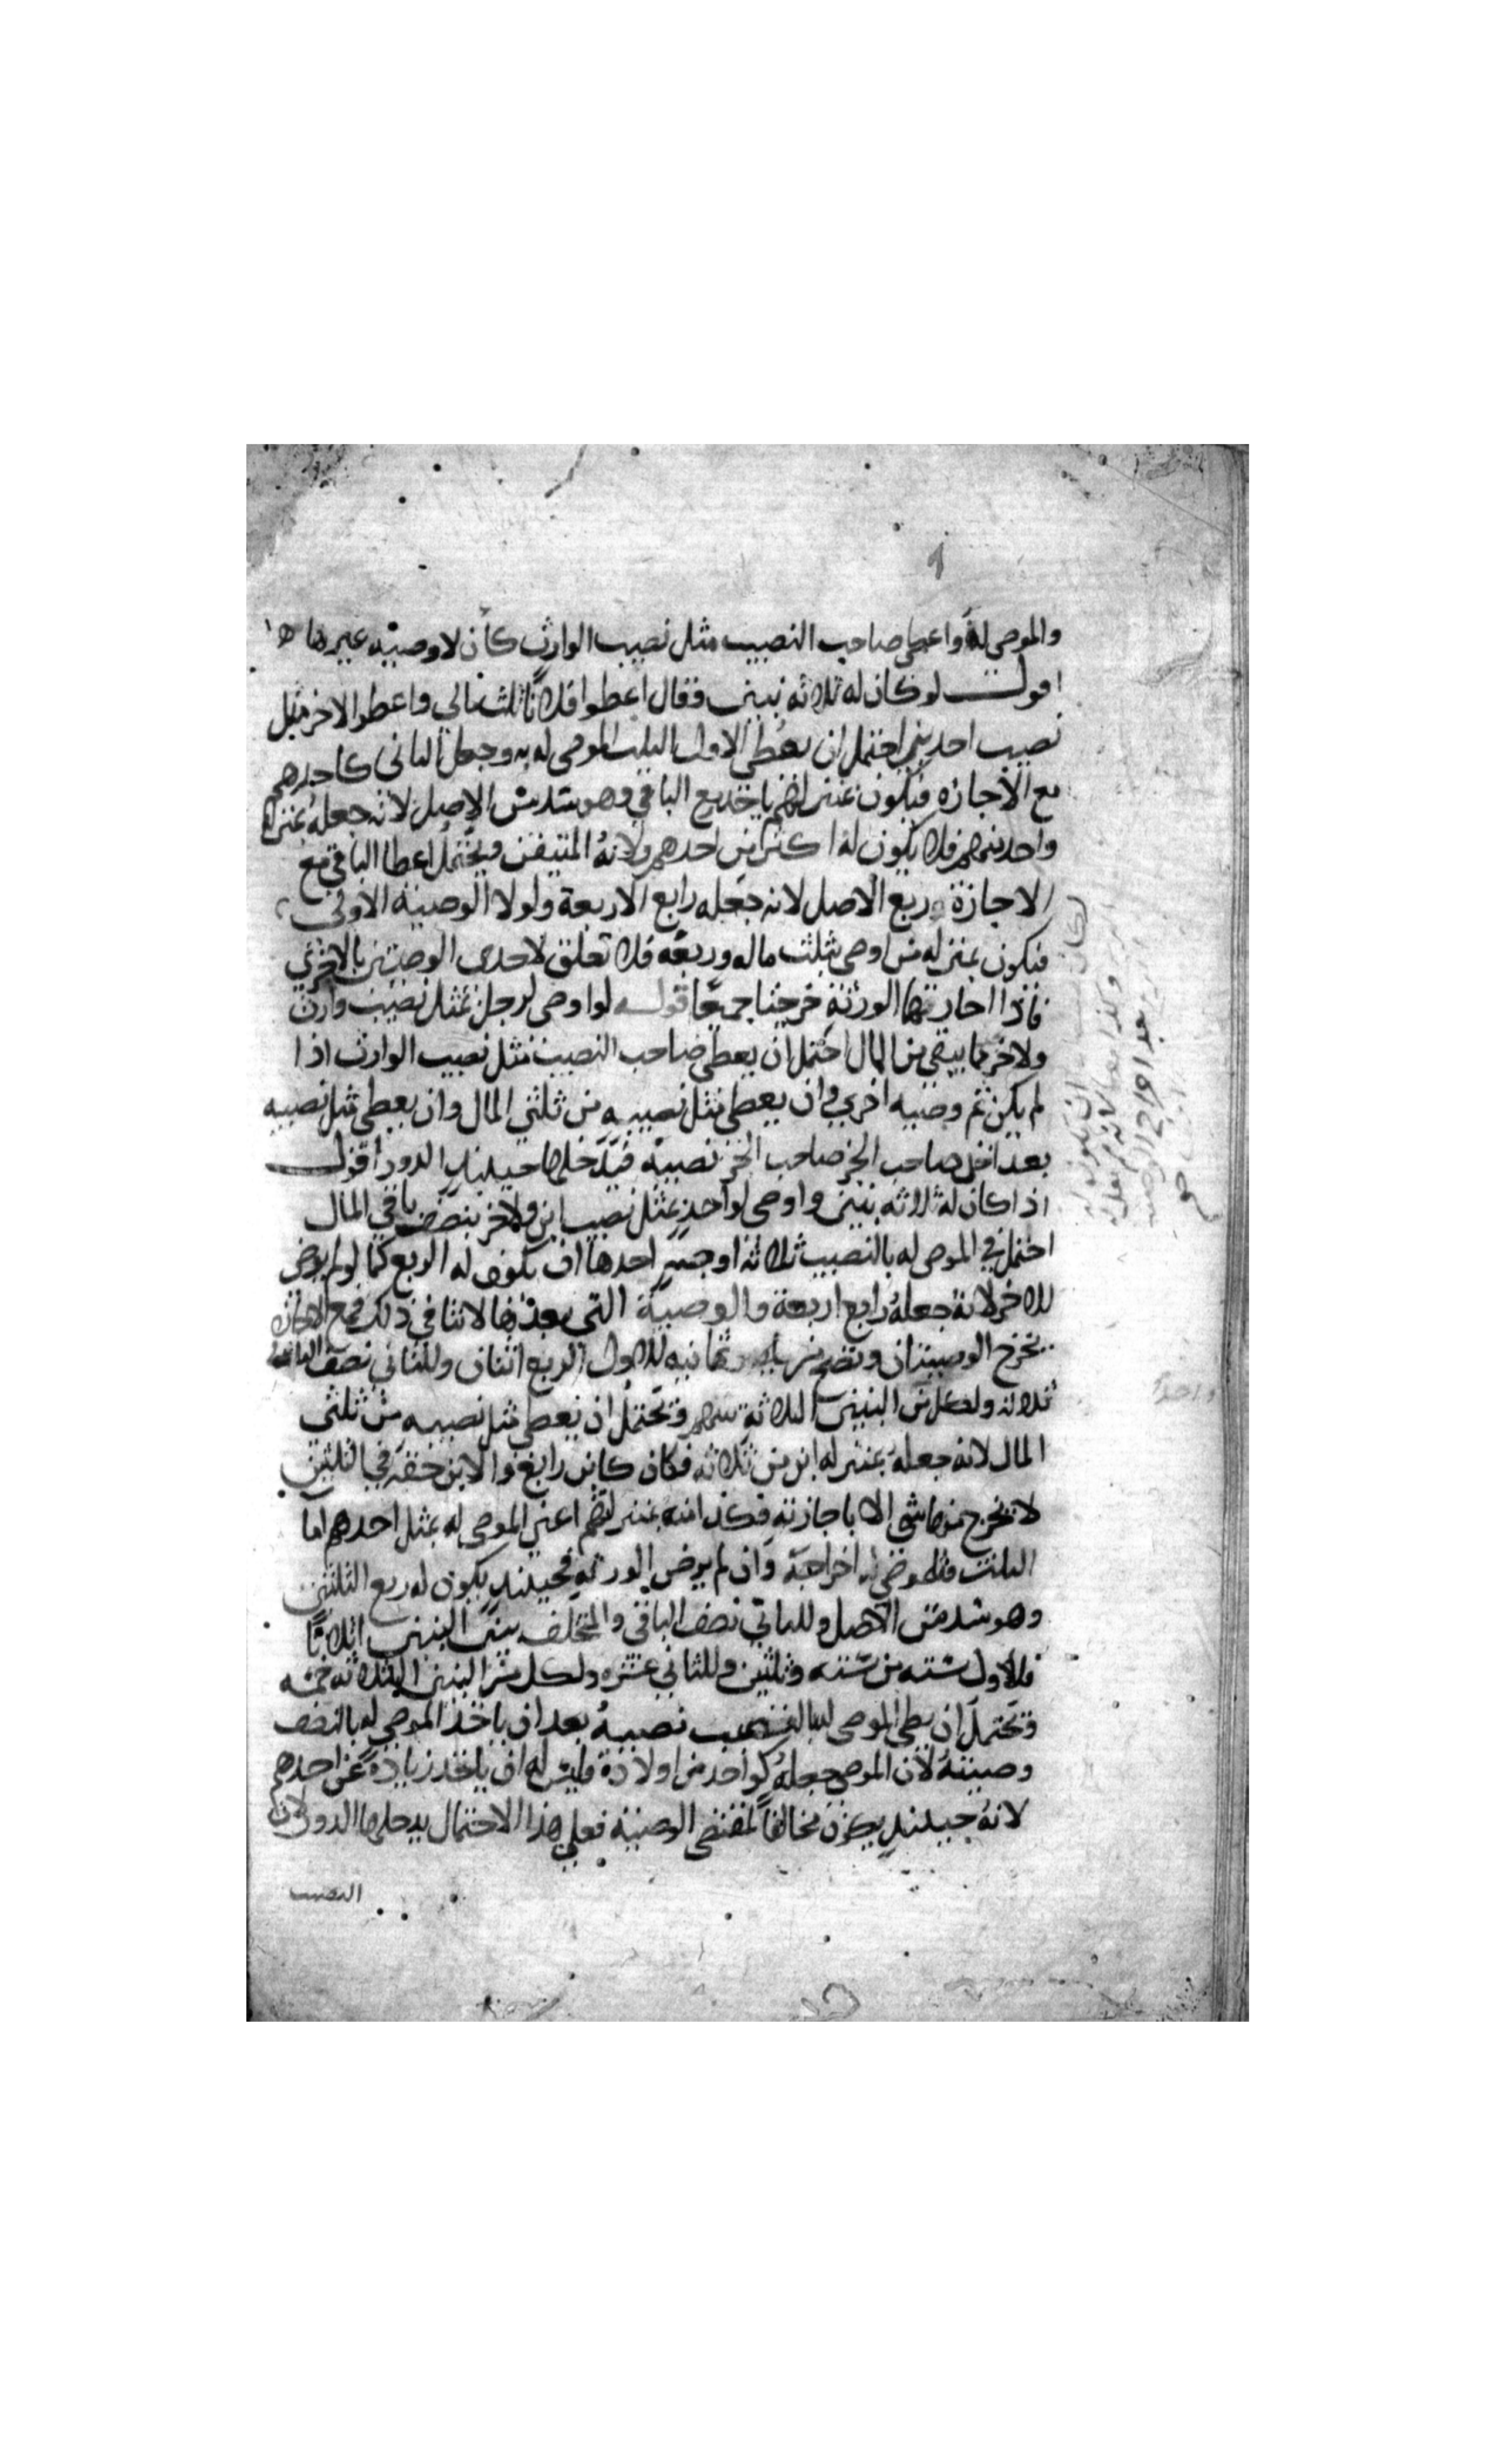 والموصى له واعطى صاحب النصيب مثل نصيب الوارث كأن لا وصيه غيرها ها
اقول لو كان له ثلاثه بنين فقال اعطوا فلانا ثلث مالي واعطوا الاخر مثل
نصيب احد بني احتمل ان يعطي الاول الثلث الموصى له به وجعل الثاني كاحدهم
مع الاجازه فيكون بمنزلتهم ياخذ ربع الباقي وهو سدس الاصل لانه جعله بمنزله
واحد منهم فلا يكون له اكثر من احدهم ولانه المتيقن ويحتمل اعطا الباقي مع
الاجازة وربع الاصل لانه جعله رابع الاربعة ولولا الوصية الاولى
فيكون بمنزله من اوصى بثلث ماله وربعه فلا تعلق لاحدى الوصيتين بالاخرى
فاذا اجازتهما الورثة خرجتا جميعا قوله لو اوصى لرجل بمثل نصيب وارث
ولاخر بما يبقى من المال احتمل ان يعطى صاحب النصيب مثل نصيب الوارث اذا
لم يكن ثم وصيه اخرى وان يعطى مثل نصيبه من ثلثي المال وان يعطى مثل نصيبه
بعد اخذ صاحب الجز صاحب الجز نصيبه فيدخلها حينئذ الدور اقول
اذا كان له ثلاثه بنين واوصى لواحد بمثل نصيب ابن ولاخر بنصف باقي المال
احتمل في الموصى له بالنصيب ثلاثه اوجه احدها ان يكون له الربع كما لو لم يوص
للاخر لانه جعله رابع اربعة والوصية التي بعدها لا تنافي ذلك فمع الاجازه
تخرج الوصيتان وتصح من ثمانيه للاول الربع اثنان وللثاني نصف الباقي
ثلاثه ولكل من البنين الثلاثه سهم ويحتمل ان يعطى مثل نصيبه من ثلثي
المال لانه جعله بمنزله ابن من ثلاثه فكان كابن رابع والابن حقه في الثلثين
لا يخرج منها شي الا باجازته فكذا انه بمنزلتهم اعني الموصى له بمثل احدهم اما
الثلث فللموصي اخراجه وان لم يرض الورثه فحينئذ يكون له ربع الثلثين
وهو سدس الاصل وللثاني نصف الباقي والمتخلف بين البنين اثلاثا
فللاول سته من سته وثلثين وللثاني عشره ولكل من البنين الثلاثه خمسه
ويحتمل ان يعطى الموصى له نصيبه بعد ان ياخذ الموصى له بالنصف
وصيته لان الموصي جعله كواحد من اولاده فليس له ان ياخذ زيادة عن احدهم
لانه حينئذ يكون مخالفا لمقتضى الوصية فعلى هذا الاحتمال يدخلها الدور لان
النصيب